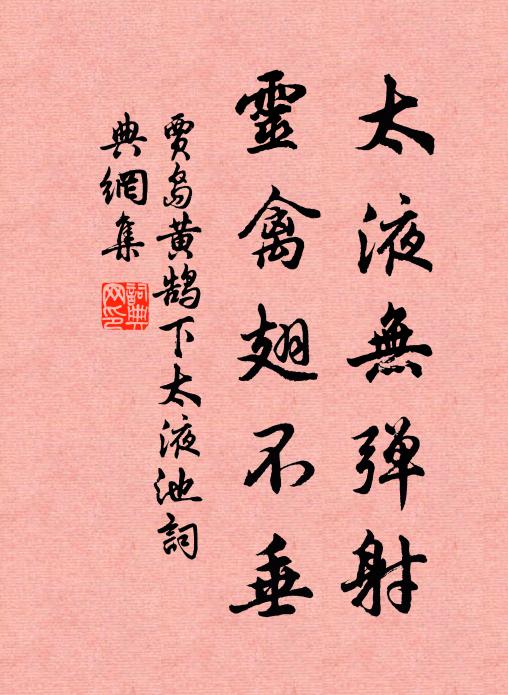 太液無弾射
靈禽翅不垂
賈島黄鵠下太液池詞
典網集
詞典網印